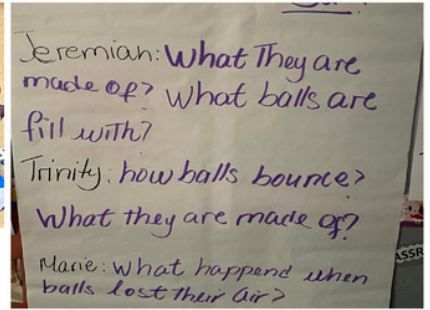 Jeremiah: What They are
made of? What balls are
fill with?
Trinity: how balls bounce?
What they are made of?
Marie: What happend when
balls lost their air?
ASSR